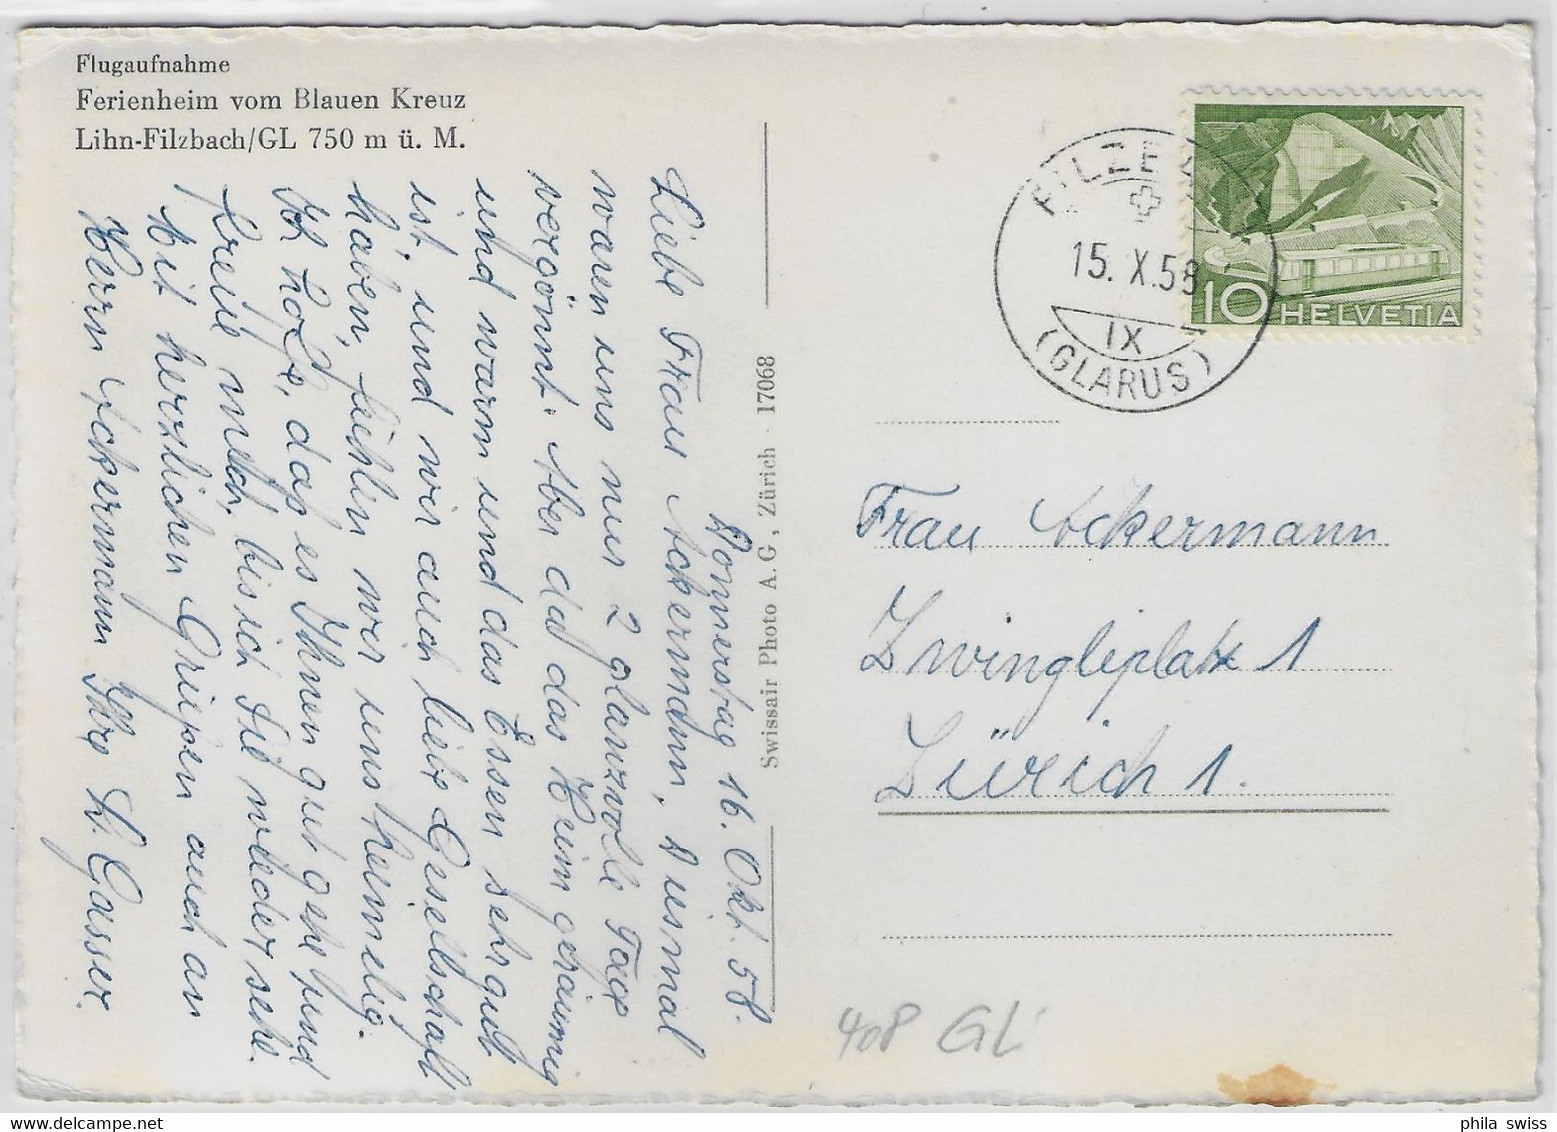 Flugaufnahme
Ferienheim vom Blauen Kreuz
Lihn-Filzbach/GL 750 m ü. M.
Donnerstag 16. Okt. 58.
Liebe Frau Ackermann, Diesmal
waren uns nur 2 glanzvolle Tage
vergönnt. Aber da das Heim geräumig
und warm und das Essen sehr gut
ist, und wir auch liebe Gesellschaft
haben, fühlen wir uns heimelig.
Ich hoffe, dass es Ihnen gut gehe und
freue mich, bis ich Sie wieder sehe.
Mit herzlichen Grüssen auch an
Herrn Ackermann Ihre L. Gasser.
Swissair Photo A.G., Zürich · 17068
15. X. 58
IX
(GLARUS)
10 HELVETIA
Frau Ackermann
Zwingliplatz 1
Zürich 1.
408 GL
phila swiss